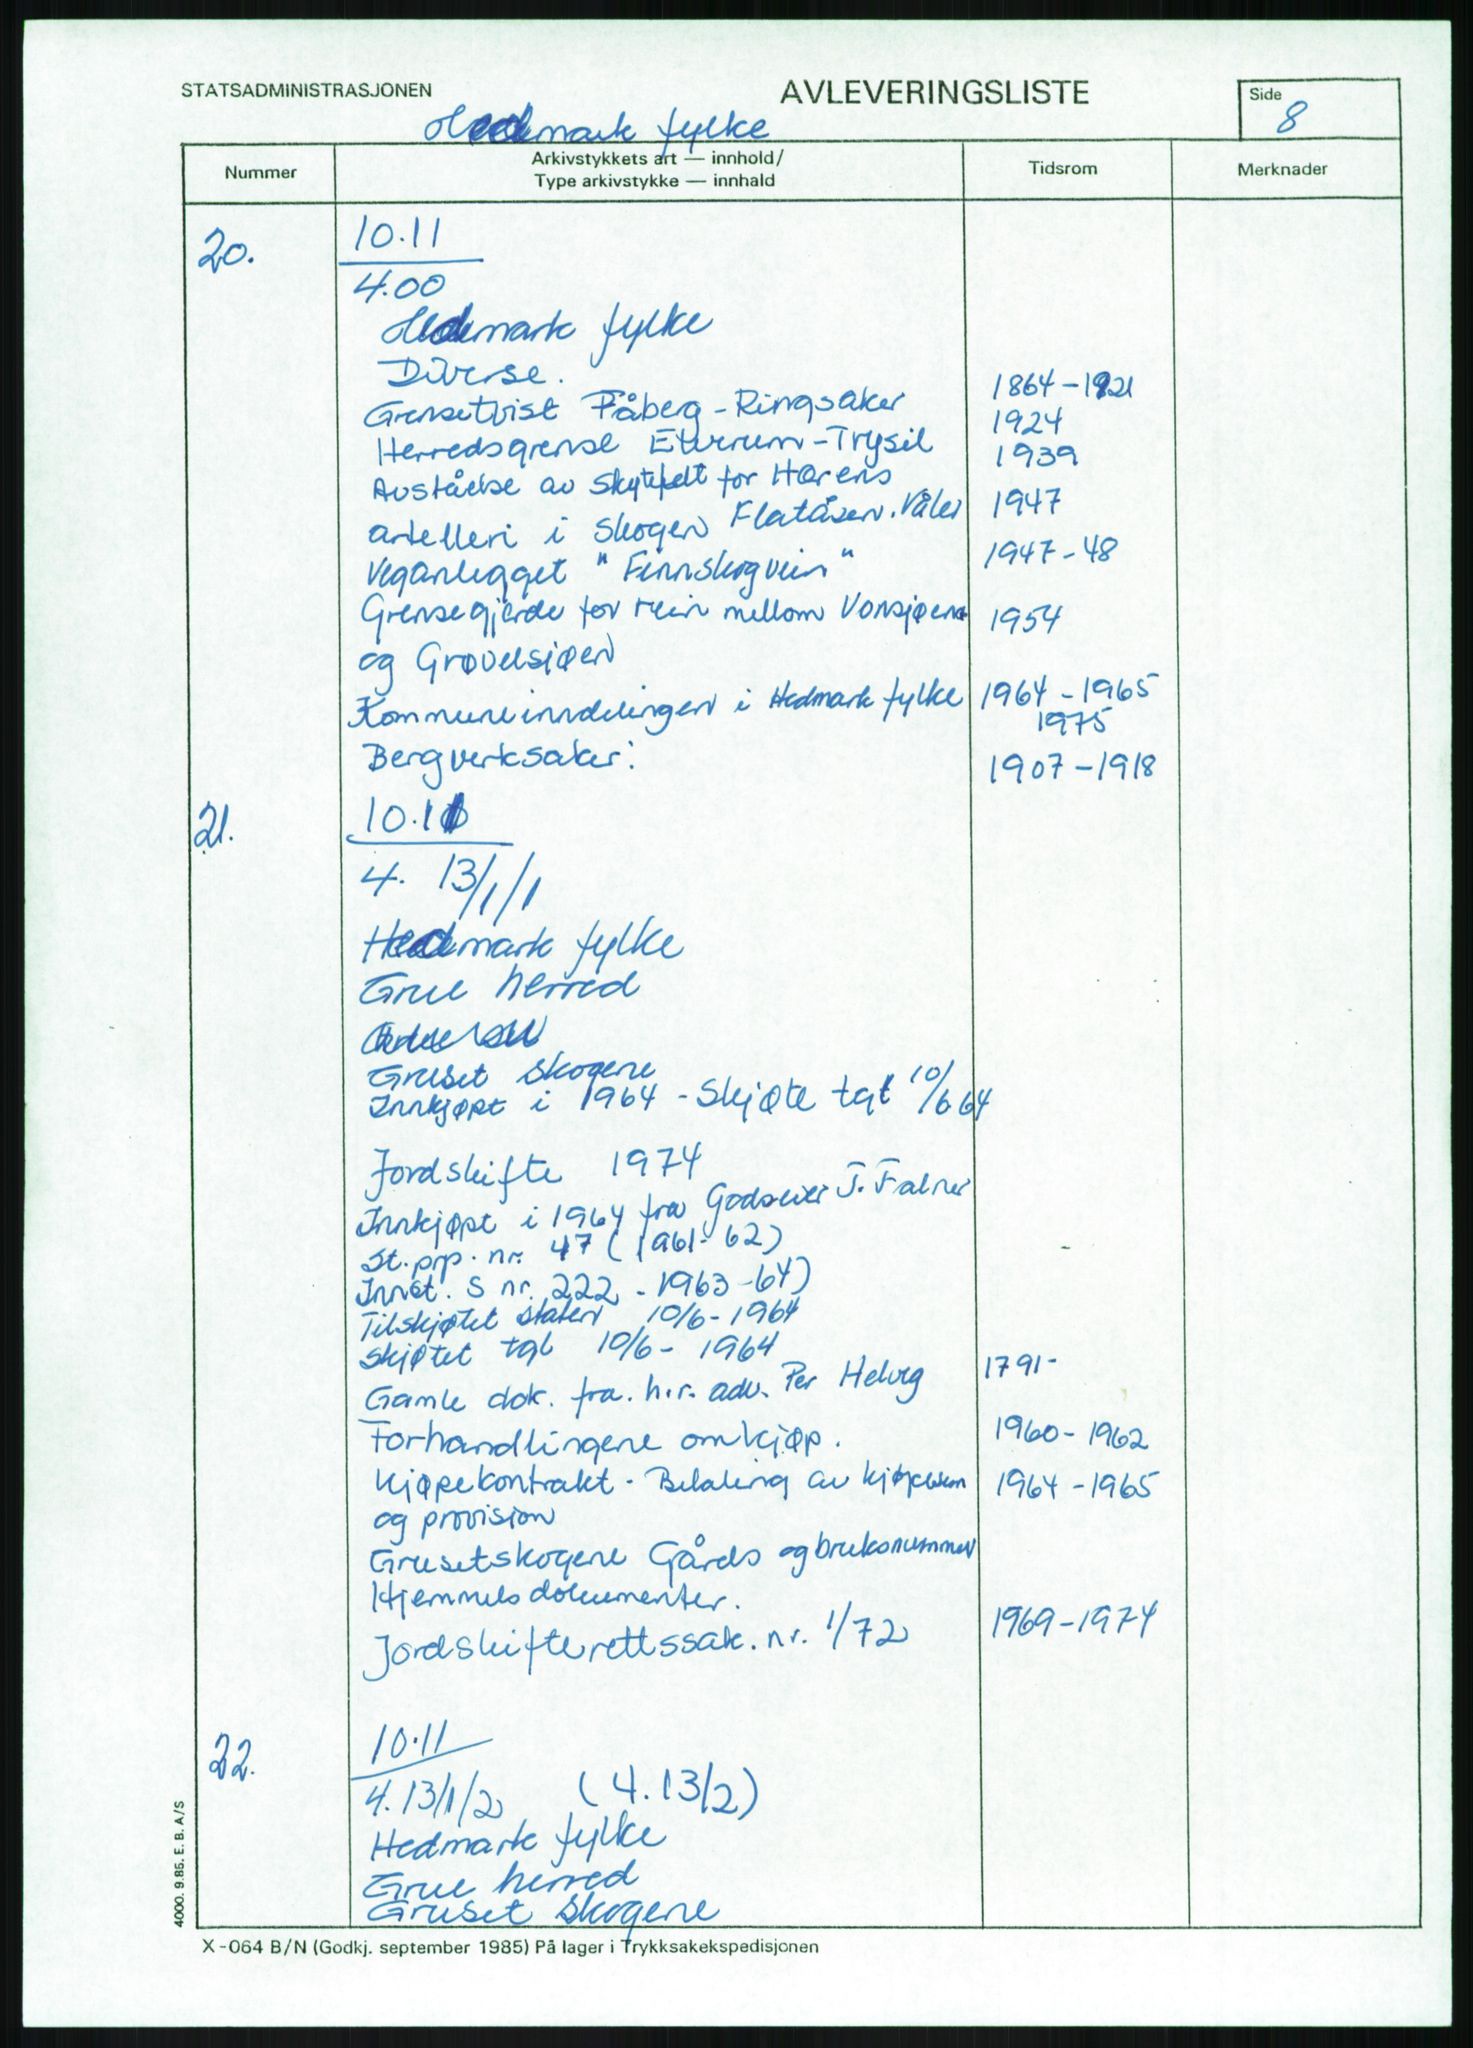 STATSADMINISTRASJONEN
AVLEVERINGSLISTE
Side
8
Hedmark fylke
Nummer
Arkivstykkets art — innhold/
Type arkivstykke — innhald
Tidsrom
Merknader
20.
10.11
4.00
Hedmark fylke
Diverse.
Grensetvist Fåberg - Ringsaker 1864-1921
Herredsgrense Elverum - Trysil 1924
Avståelse av skytefelt for Hærens 1939
artelleri i skogen Flatåsen. Våler 1947
Veganlegget "Finnskogvein" 1947-48
Grensegjerde for rein mellom Vonsjøen 1954
og Grøvelsjøen
Kommuneinndelingen i Hedmark fylke 1964-1965
1975
Bergverksaker: 1907-1918
21.
10.11
4. 13/1/1
Hedmark fylke
Grue herred
Gruset skogene
Innkjøpt i 1964 - Skjøte tgl 10/6 64
Jordskifte 1974
Innkjøpt i 1964 fra Godseier J. Falner
St. prp. nr. 47 (1961-62)
Innst. S nr. 222 - 1963-64)
Tilskjøtet staten 10/6-1964
Skjøtet tgl 10/6- 1964
Gamle dok. fra. h.r. adv. Per Helvig 1791-
Forhandlingene om kjøp. 1960-1962
Kjøpekontrakt - Betaling av kjøpesum 1964-1965
og provisjon
Grusetskogene Gårds og bruksnummer
Hjemmelsdokumenter.
Jordskifterettssak. nr. 1/72 1969-1974
22.
10.11
4.13/1/2 (4.13/2)
Hedmark fylke
Grue herred
Gruset skogene
4000. 9.85. E. B. A/S
X-064 B/N (Godkj. september 1985) På lager i Trykksakekspedisjonen